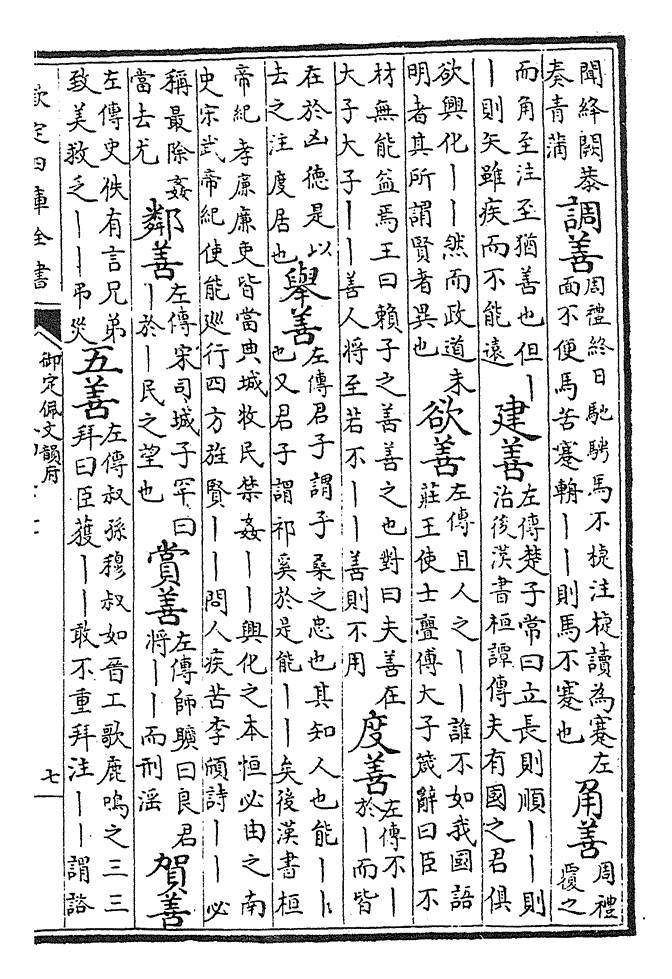 聞絳闕恭奏青蒲調善周禮終日馳騁馬不楗注楗讀為蹇左面不便馬苦蹇輈丨丨則馬不蹇也角善周禮覆之
而角至注至猶善也但丨丨則矢雖疾而不能遠建善左傳楚子常曰立長則順丨丨則治後漢書桓譚傳夫有國之君俱
欲興化丨丨然而政道未明者其所謂賢者異也欲善左傳且人之丨丨誰不如我國語莊王使士亹傅大子箴辭曰臣不
材無能益焉王曰賴子之善善之也對曰夫善在大子大子丨丨善人將至若不丨丨善則不用度善左傳不丨於丨而皆
在於凶德是以去之注度居也舉善左傳君子謂子桑之忠也其知人也能丨丨也又君子謂祁奚於是能丨丨矣後漢書桓
帝紀孝廉廉吏皆當典城牧民禁姦丨丨興化之本恒必由之南史宋武帝紀使能巡行四方旌賢丨丨問人疾苦李頎詩丨丨必
稱最除姦當去尤鄰善左傳宋司城子罕曰丨於丨民之望也賞善左傳師曠曰良君將丨丨而刑淫賀善
左傳史佚有言兄弟致美救乏丨丨弔災五善左傳叔孫穆叔如晉工歌鹿鳴之三三拜曰臣獲丨丨敢不重拜注丨丨謂諮
欽定四庫全書
御定佩文韻府
七